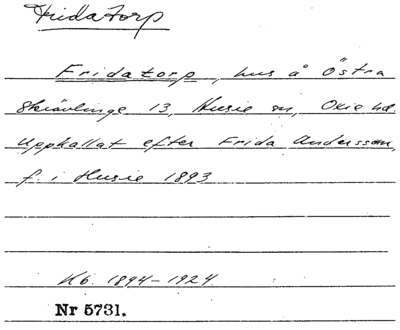 Fridatorp
Fridatorp, hus å Östra
Skrävlinge 13, Husie sn, Oxie hd.
Uppkallat efter Frida Andersson,
f. i Husie 1893
Kb. 1894-1924
Nr 5731.